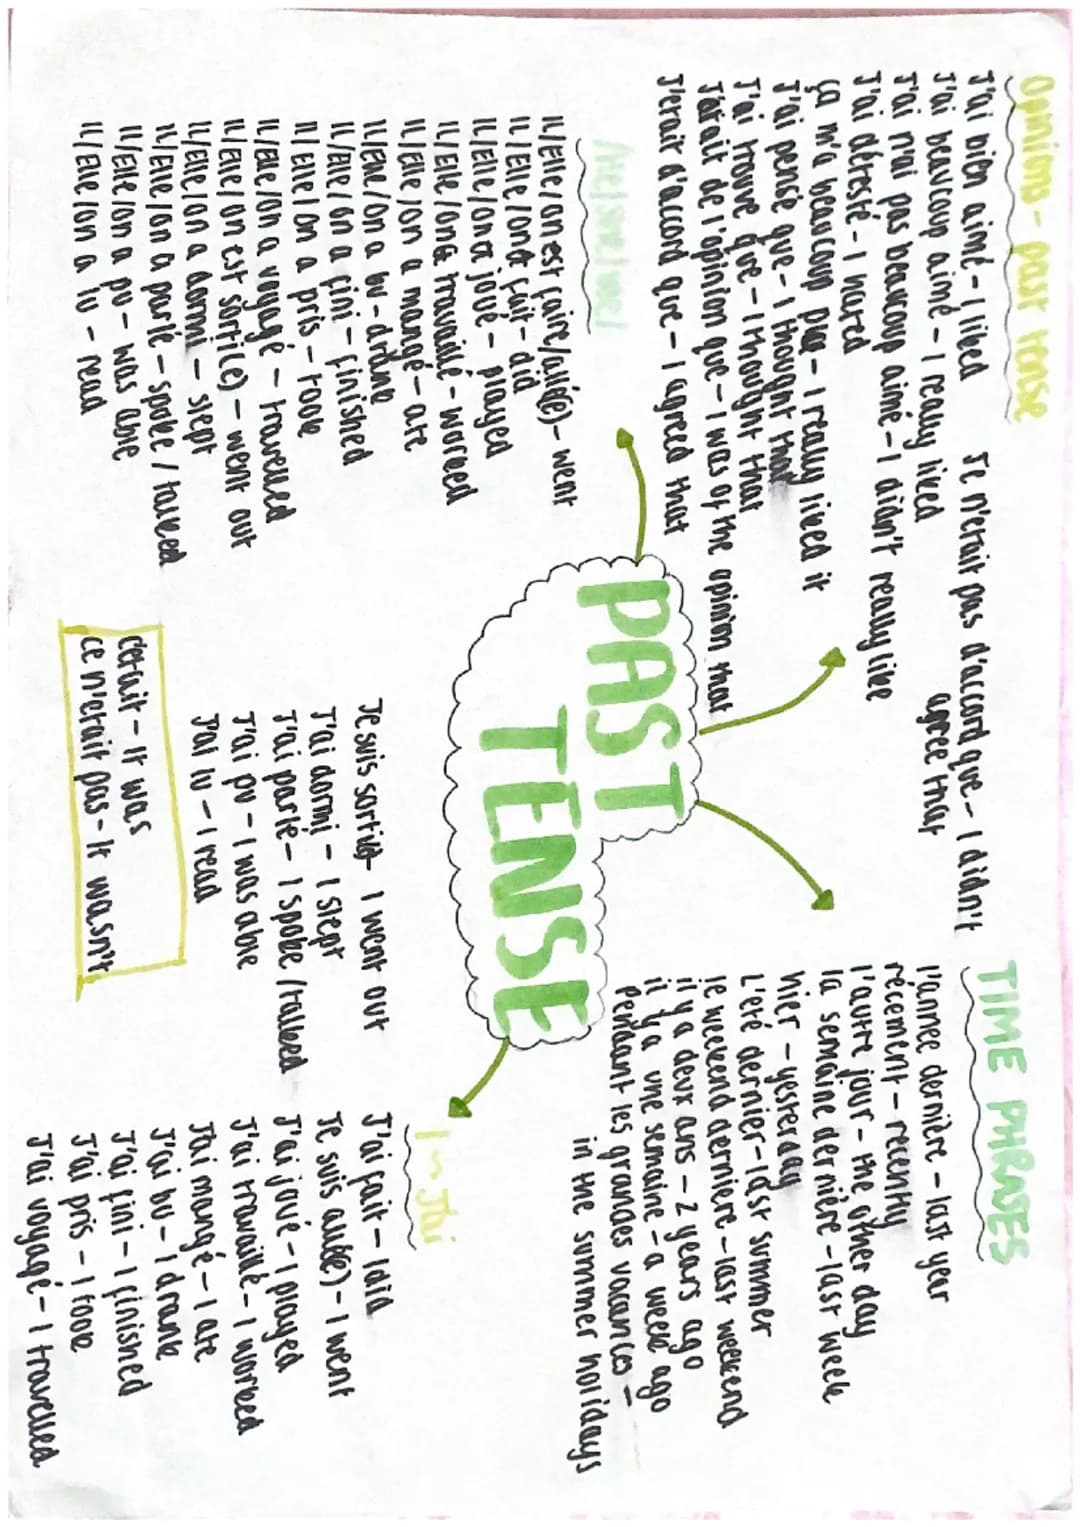 Opinions - past tense
J'ai bien aimé - I liked
J'ai beaucoup aimé - I really liked
J'ai n'ai pas beaucoup aimé - I didn't really like
J'ai détesté - I hated
ça m'a beaucoup plu - I really liked it
J'ai pensé que - I thought that
J'ai trouvé que - I thought that
J'etait de l'opinion que - I was of the opinion that
J'etait d'accord que - I agreed that
Je n'etait pas d'accord que - I didn't
agree that
TIME PHRASES
l'annee dernière - last year
récement - recently
l'autre jour - the other day
la semaine dernière - last week
hier - yesterday
L'été dernier - last summer
le weekend derniere - last weekend
il y a deux ans - 2 years ago
il y a une semaine - a week ago
Pendant les grandes vacances -
in the summer holidays
PAST
TENSE
/He/she/we/
IL/Elle/on est faire/allé(e) - went
IL/Elle/on a fait - did
IL/Elle/on a joué - played
IL/Elle/on a travaillé - worked
IL/Elle/on a mangé - ate
IL/Elle/on a bu - drank
IL/Elle/on a fini - finished
IL/Elle/on a pris - took
IL/Elle/on a voyagé - travelled
IL/Elle/on est sorti(e) - went out
IL/Elle/on a dormi - slept
IL/Elle/on a parlé - spoke / talked
IL/Elle/on a pu - was able
IL/Elle/on a lu - read
I - J'ai
J'ai fait - I did
Je suis allé(e) - I went
J'ai joué - I played
J'ai travaillé - I worked
J'ai mangé - I ate
J'ai bu - I drank
J'ai fini - I finished
J'ai pris - I took
J'ai voyagé - I travelled
Je suis sorti(e) - I went out
J'ai dormi - I slept
J'ai parlé - I spoke / talked
J'ai pu - I was able
J'ai lu - I read
c'etait - It was
ce n'etait pas - It wasn't